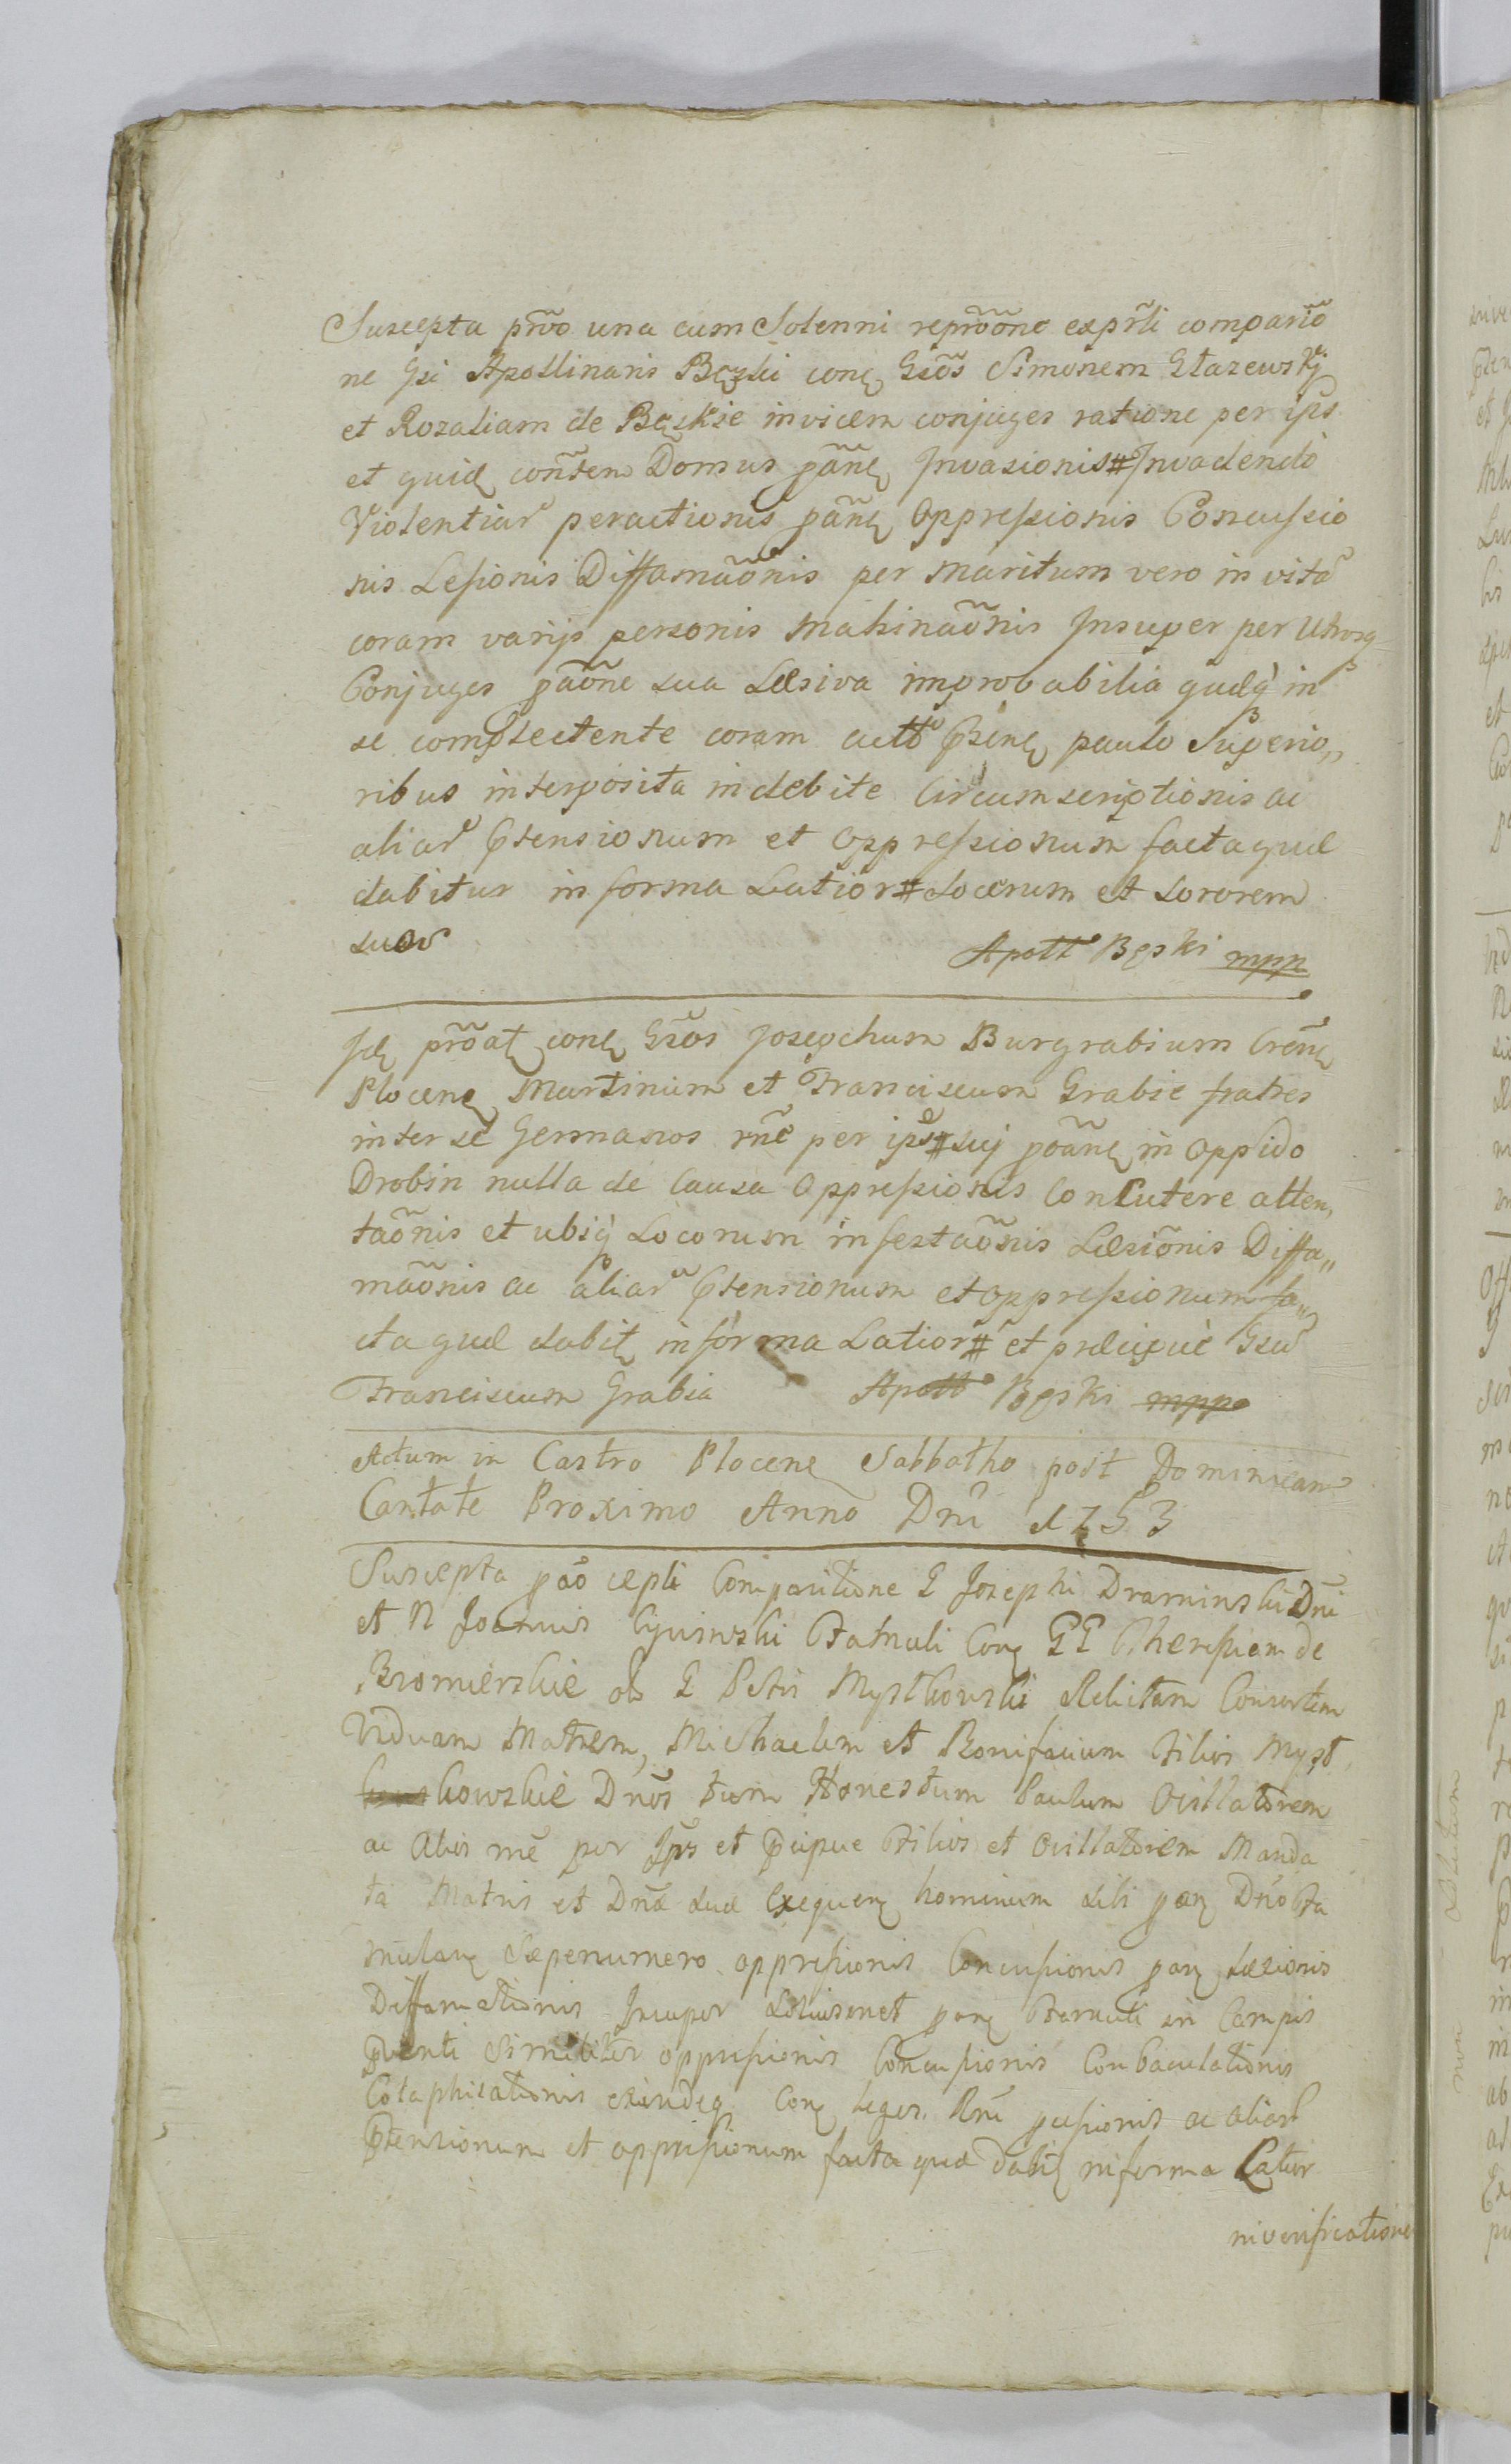 Suscepta prõõ una cum Solenni reprõõne exprĩi comparĩõ
ne Gsi Apollinaris Bęski conę Gsõs Simonem Głazewskj
et Rozaliam de Bęskie invicem conjuges ratione per ips
et quidę conr̃tem Domus pãnę Invasionis # Invadendo
Violentiar peractionis pãnę Oppressionis Concussio
nis Lesionis Diffamãonis per Maritum vero in vita
coram varijs personis Makinãonis Insuper per Utrosq
Conjuges pãone sua Læsiva improbabilia quæq in
se complectente coram actto pñsenę paulo Superio,,
ribus interposita indebite Circumscriptionis ac
aliar ptensionum et oppressionum facta quæ
dabitur in forma Latior # Socerum et Sororem
suos
Apoll Bęski mpp
Idę prõatę conę Gsõs Josephum Burgrabium Crẽnę
Plocenę Martinum et Franciscum Grabie fratres
inter se Germanos rñe per ips # suj põãnę in Oppido
Drobin nulla de Causa Oppressionis Concutere atten,,
tãonis et ubiq Locorum infestãonis Læsionis Diffa,,
mãonis ac aliar ptensionum et oppressionum fa,,
cta quæ dabitę in forma Latior # et præcipue Gsũ
Franciscum Grabia Apoll Bęski mpp
Actum in Castro Plocenę Sabbatho post Dominicam
Cantate Proximo Anno Dni 1753
Suscepta pão cepti Comparitione G Josephi Draminski Dni
et N Joannis Famuli Conę GG Theressiam de
Bromierskie olo G Petri Mystkowski Relictam Consortem
Viduam Matrem, Michaelem et Bonifacium Filios Myst
kowskie Dnos tum Honestum Paulum Ovillatorem
ac alios rñe per Ips et pcipue Filios et Ovillatorem Manda
ta Matris et Dnæ suæ Exequenę hominum sibi panę Dno Fa
mulanę Sæpenumero oppressionis Concussionis panę Læsionis
Diffamationis Insuper Solius met panę Famuli in Campis
Similiter oppressionis Concussionis Conbaculationis
Colaphisationis Conę leges Rni pcussionis ac aliar
ptensionum et oppressionum facta quæ dabitę in forma Latior
niverificatione